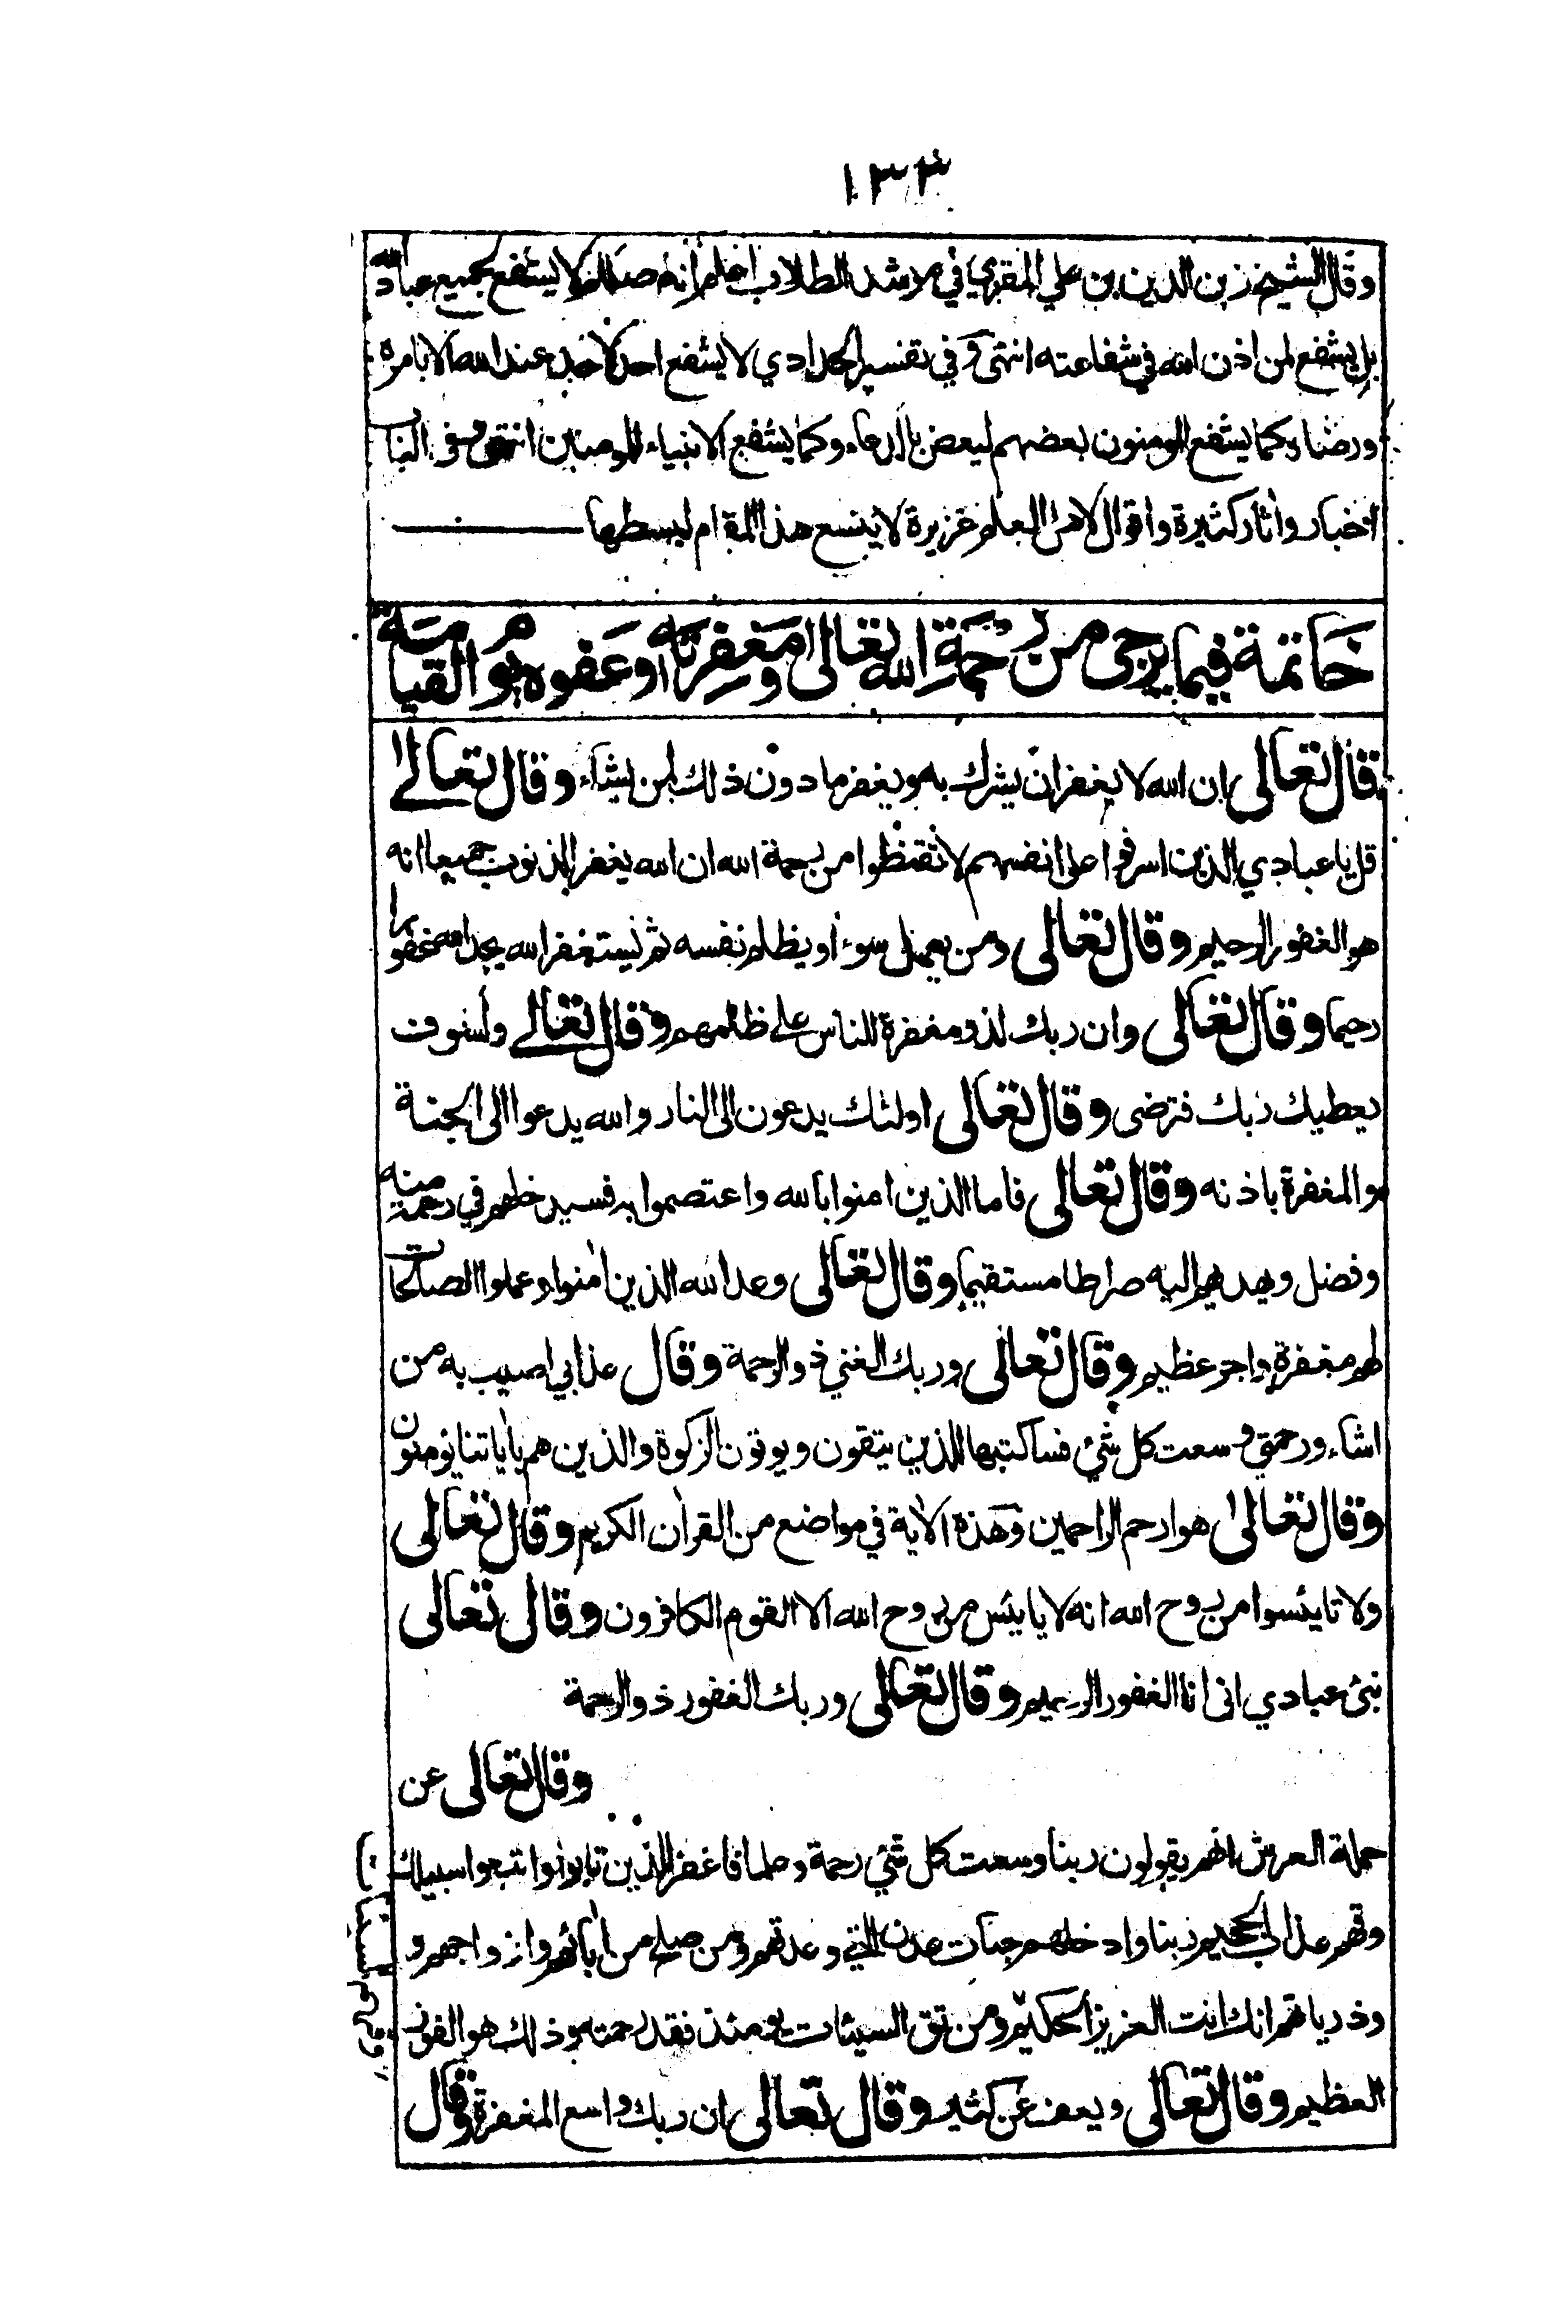 ١٣٣
وقال الشيخ زين الدين بن علي المقبري في مرشد الطلاب اعلم انه صلعم لا يشفع لجميع عباد الله
بل يشفع لمن اذن الله في شفاعته انتهى وفي تفسير الحدادي لا يشفع احد لاحد عند الله الا بامره
ورضاه كما يشفع المومنون بعضهم لبعض بالدعاء وكما يشفع الانبياء للمومنين انتهى وفي الباب
اخبار واثار كثيرة واقوال لاهل العلم غزيرة لا يتسع هذا المقام لبسطها
خاتمة فيما يرجى من رحمة الله تعالى ومغفرته او عفوه يوم القيامة
قال تعالى ان الله لا يغفر ان يشرك به ويغفر ما دون ذلك لمن يشاء وقال تعالى
قل يا عبادي الذين اسرفوا على انفسهم لا تقنطوا من رحمة الله ان الله يغفر الذنوب جميعا انه
هو الغفور الرحيم وقال تعالى ومن يعمل سوء او يظلم نفسه ثم يستغفر الله يجد الله غفورا
رحيما وقال تعالى وان ربك لذو مغفرة للناس على ظلمهم وقال تعالى ولسوف
يعطيك ربك فترضى وقال تعالى اولئك يدعون الى النار والله يدعوا الى الجنة
والمغفرة باذنه وقال تعالى فاما الذين امنوا بالله واعتصموا به فسيدخلهم في رحمة منه
وفضل ويهديهم اليه صراطا مستقيما وقال تعالى وعد الله الذين امنوا وعملوا الصالحات
لهم مغفرة واجر عظيم وقال تعالى وربك الغني ذو الرحمة وقال عذابي اصيب به من
اشاء ورحمتي وسعت كل شئ فساكتبها للذين يتقون ويوتون الزكوة والذين هم باياتنا يومنون
وقال تعالى هو ارحم الراحمين وهذه الاية في مواضع من القران الكريم وقال تعالى
ولا تايئسوا من روح الله انه لا يايئس من روح الله الا القوم الكافرون وقال تعالى
نبئ عبادي اني انا الغفور الرحيم وقال تعالى وربك الغفور ذو الرحمة
وقال تعالى عن
حملة العرش انهم يقولون ربنا وسعت كل شئ رحمة وعلما فاغفر للذين تابوا واتبعوا سبيلك
وقهم عذاب الجحيم ربنا وادخلهم جنات عدن التي وعدتهم ومن صلح من ابائهم وازواجهم و
وذرياتهم انك انت العزيز الحكيم ومن تق السيئات يومئذ فقد رحمته وذلك هو الفوز
العظيم وقال تعالى ويعف عن كثير وقال تعالى ان ربك واسع المغفرة وقال